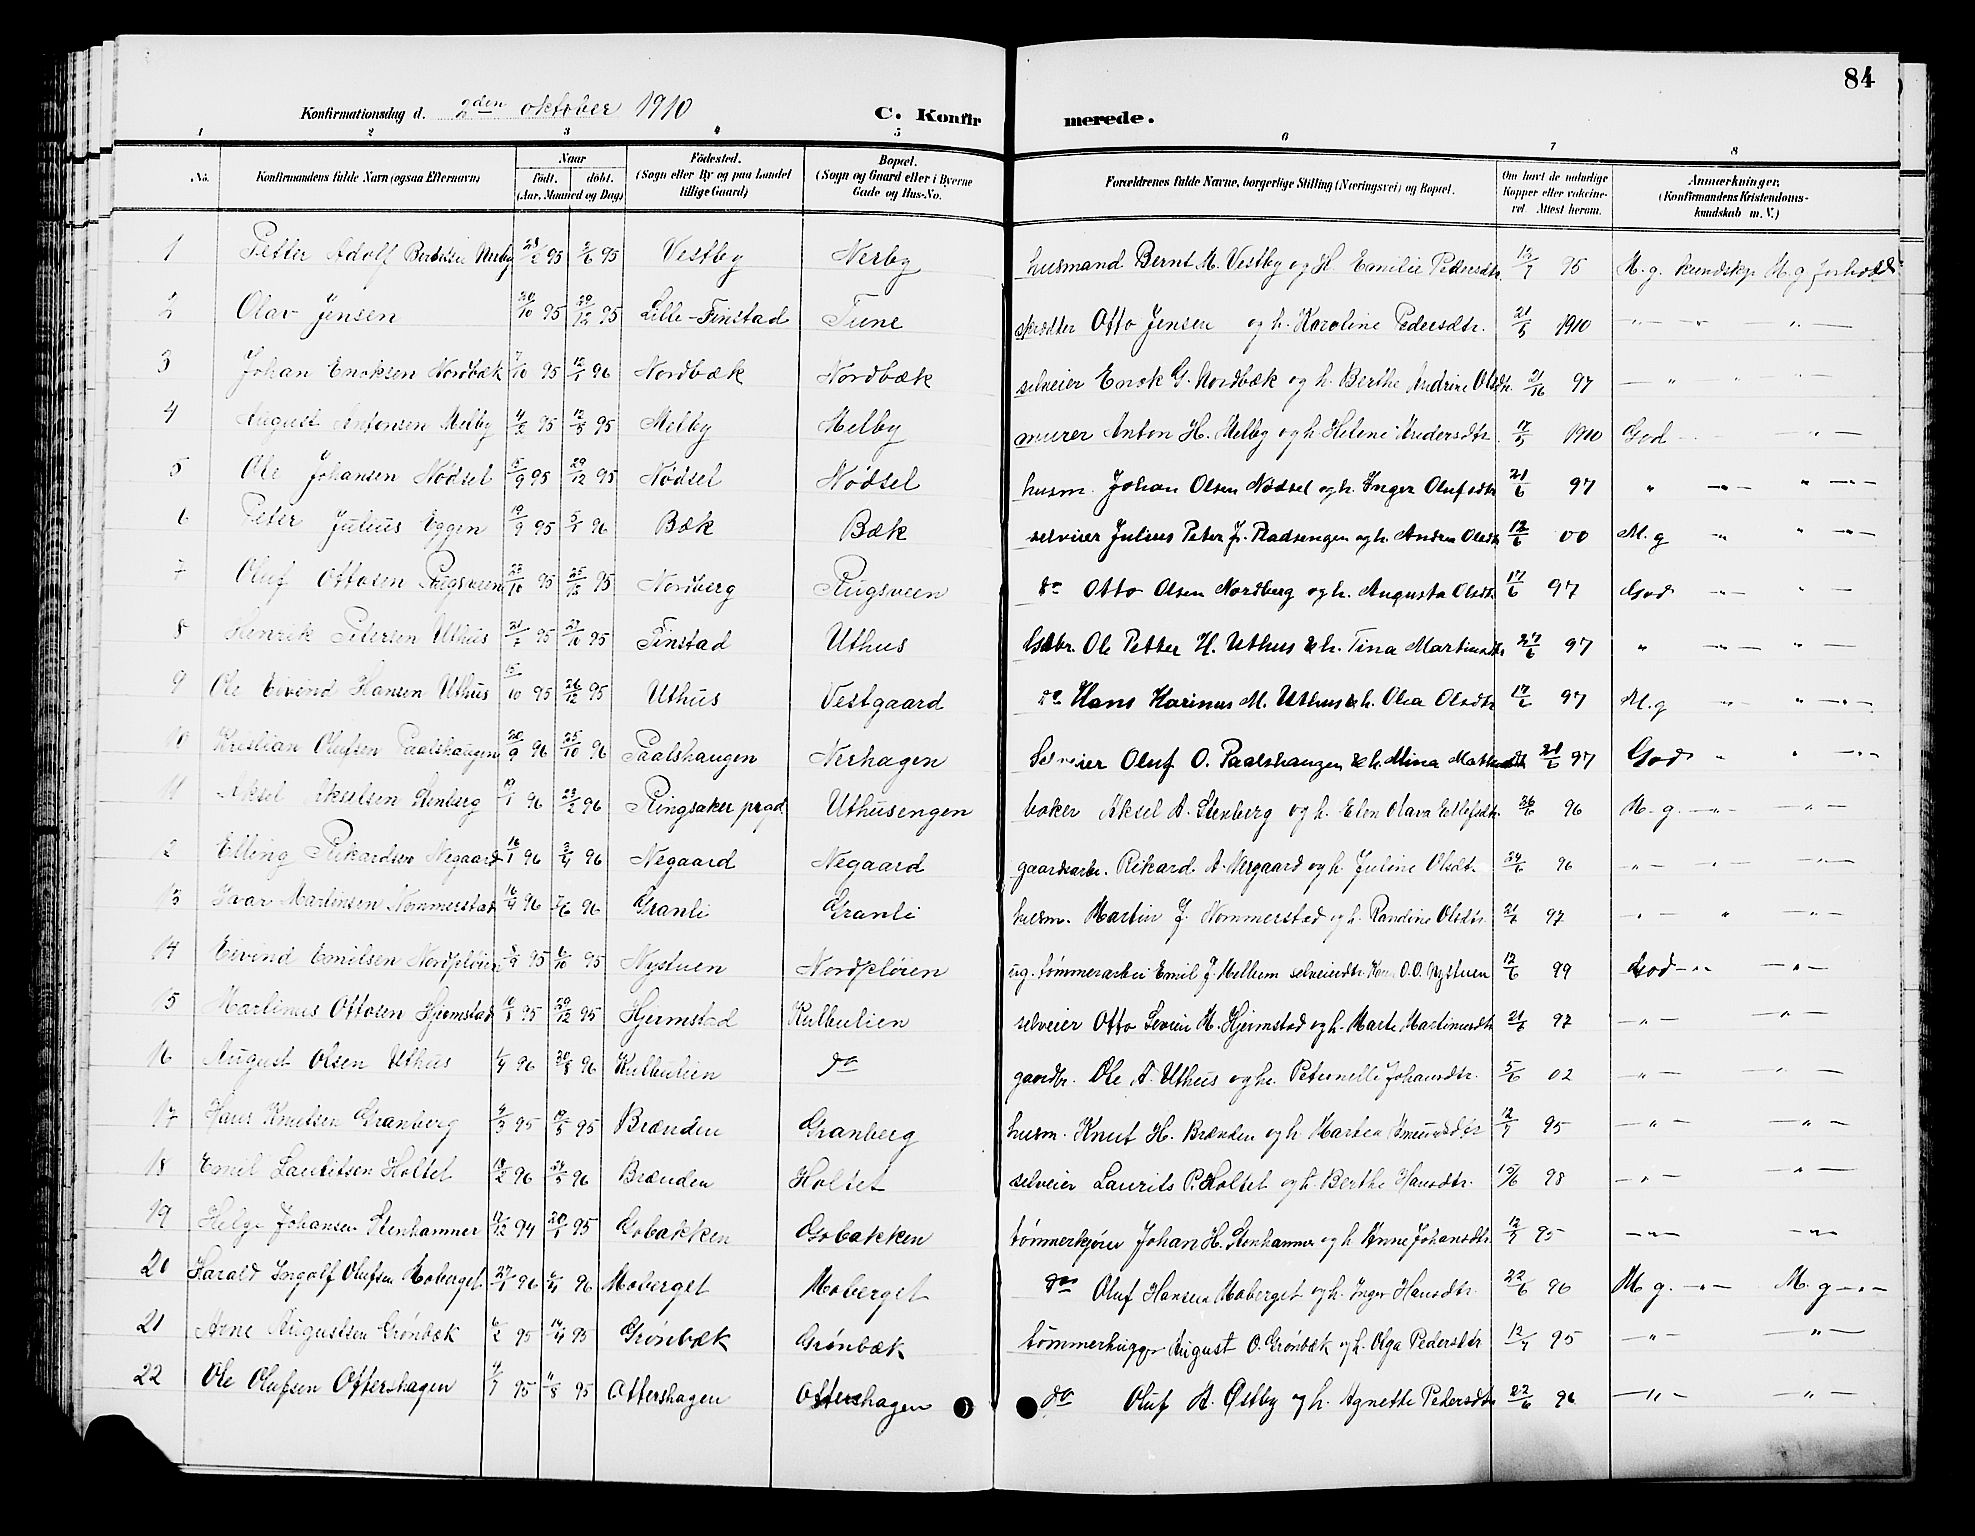 84
Konfirmationsdag d. 2den oktober 1910 C. Konfirmerede.
1 2 3 4 5 6 7 8
No. Konfirmandens fulde Navn (ogsaa Efternavn) Naar født. døbt. (Aar, Maaned og Dag) Födested. (Sogn eller By og paa Landet tillige Gaard) Bopæl. (Sogn og Gaard eller i Byerne Gade og Hus-No. Forældrenes fulde Navne, borgerlige Stilling (Næringsvei) og Bopæl. Om havt de naturlige Kopper eller vaccineret. Attest herom. Anmærkninger. (Konfirmandens Kristendomskundskab m. V.)
1 Petter Adolf Nerby 95 95 Vestby Nerby husmand Bernt M. Vestby og H. Emilie Pedersdtr. 95 M. g. kundskp M. g forhold
2 Olav Jensen 20/10 95 29/12 95 Lille-Finstad Tune skrædder Otto Jensen og h. Karoline Pedersdtr. 21/5 1910 " "
3 Johan Enoksen Nordbæk 7/10 95 12/1 96 Nordbæk Nordbæk selveier Enok G. Nordbæk og h. Berthe Andrine Olsdtr. 97 " "
4 August Antonsen Melby 95 95 Melby Melby murer Anton H. Melby og h Helene Andersdtr. 1910 God "
5 Ole Johansen Nødsel 95 29/12 95 Nødsel Nødsel husm. Johan Olsen Nødsel og h. Inger Olufsdtr 21/6 97 " " " "
6 Peter Julius Eggen 19/9 95 5/1 96 Bæk Bæk selveier Julius Peter J. Pladsengen og h. Andrea Olsdtr 12/6 00 M. g " " "
7 Oluf Ottosen Rugsveen 23/10 95 95 Nordberg Rugsveen do Otto Olsen Nordberg og h. Augusta Olsdtr. 17/6 97 God " "
8 Henrik Petersen Uthus 95 27/10 95 Finstad Uthus Gdbr. Ole Petter H. Uthus & h. Tina Martinusdtr 97 " " "
9 Ole Eivind Hansen Uthus 10 95 26/12 95 Uthus Vestgaard do Hans Karinus M. Uthus & h. Olea Olsdtr 17/6 97 M. g " " "
10 Kristian Olufsen Paalshaugen 20/9 96 25/10 96 Paalshaugen Nerhagen Selveier Oluf O. Paalshaugen & h. Mina 21/6 97 God " " "
11 Aksel Akselsen Stenberg 96 23/2 96 Ringsaker prgd. Uthusengen baker Aksel A. Stenberg og h. Elen Olava Ellefsdtr. 26/6 96 M. g. " "
12 Elling Rikardsen Negaard 16/1 96 3/4 96 Negaard Negaard gaardsarb. Rikard A. Nergaard og h. Juline Olsdt. 24/6 96 " " "
13 Ivar Martinsen Nommerstad 96 96 Granli Granli husm. Martin J. Nommerstad og h. Randine Olsdtr. 21/6 97 " " "
14 Eivind Emilsen Nordpløien 95 6/10 95 Nystuen Nordpløien ug. tømmerarbei Emil J. Mellem selveierdtr. O. O. Nystuen 12/6 99 God " "
15 Martinus Ottosen Hjermstad 95 29/12 95 Hjermstad Kulbulien selveier Otto Severin M. Hjermstad og h. Marte Martinusdtr 21/6 97 " "
16 August Olsen Uthus 96 96 Kulbulien do gaardbr. Ole A. Uthus og h. Peternelle Johansdtr. 5/6 02 " "
17 Hans Knutsen Granberg 95 95 Brænden Granberg husm. Knut H. Brænden og h. Martea 12/7 95 " "
18 Emil Lauritsen Holtet 96 96 Brænden Holtet selveier Laurits P. Holtet og h. Berthe Hansdtr. 98 " "
19 Helge Johansen Stenhammer 94 95 Gobakken Gobakken tømmerkjører Johan H. Stenhammer og h. Anne Johansdtr. 12/7 95 " "
20 Harald Ingolf Olufsen Moberget 27/1 96 96 Moberget Moberget do Oluf Hansen Moberget og h. Inger Hansdtr. 22/6 96 M. g. " M. g "
21 Arne Augustsen Grønbæk 95 95 Grønbæk Grønbæk tømmerhugger August O. Grønbæk og h. Olga Pedersdtr 12/7 95 " "
22 Ole Olufsen Ottershagen 95 95 Ottershagen Ottershagen do Oluf A. Østby og h. Agnethe Pedersdtr 22/6 96 " "